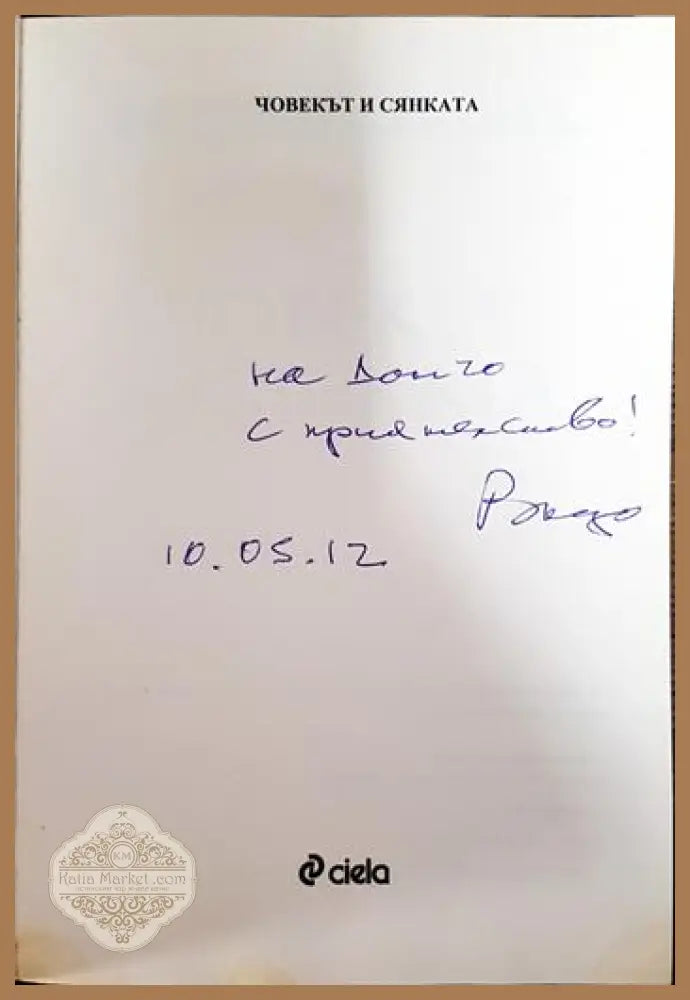 ЧОВЕКЪТ И СЯНКАТА
на Дончо
с приятелство!
10.05.12
ciela
KM
Katia Market.com